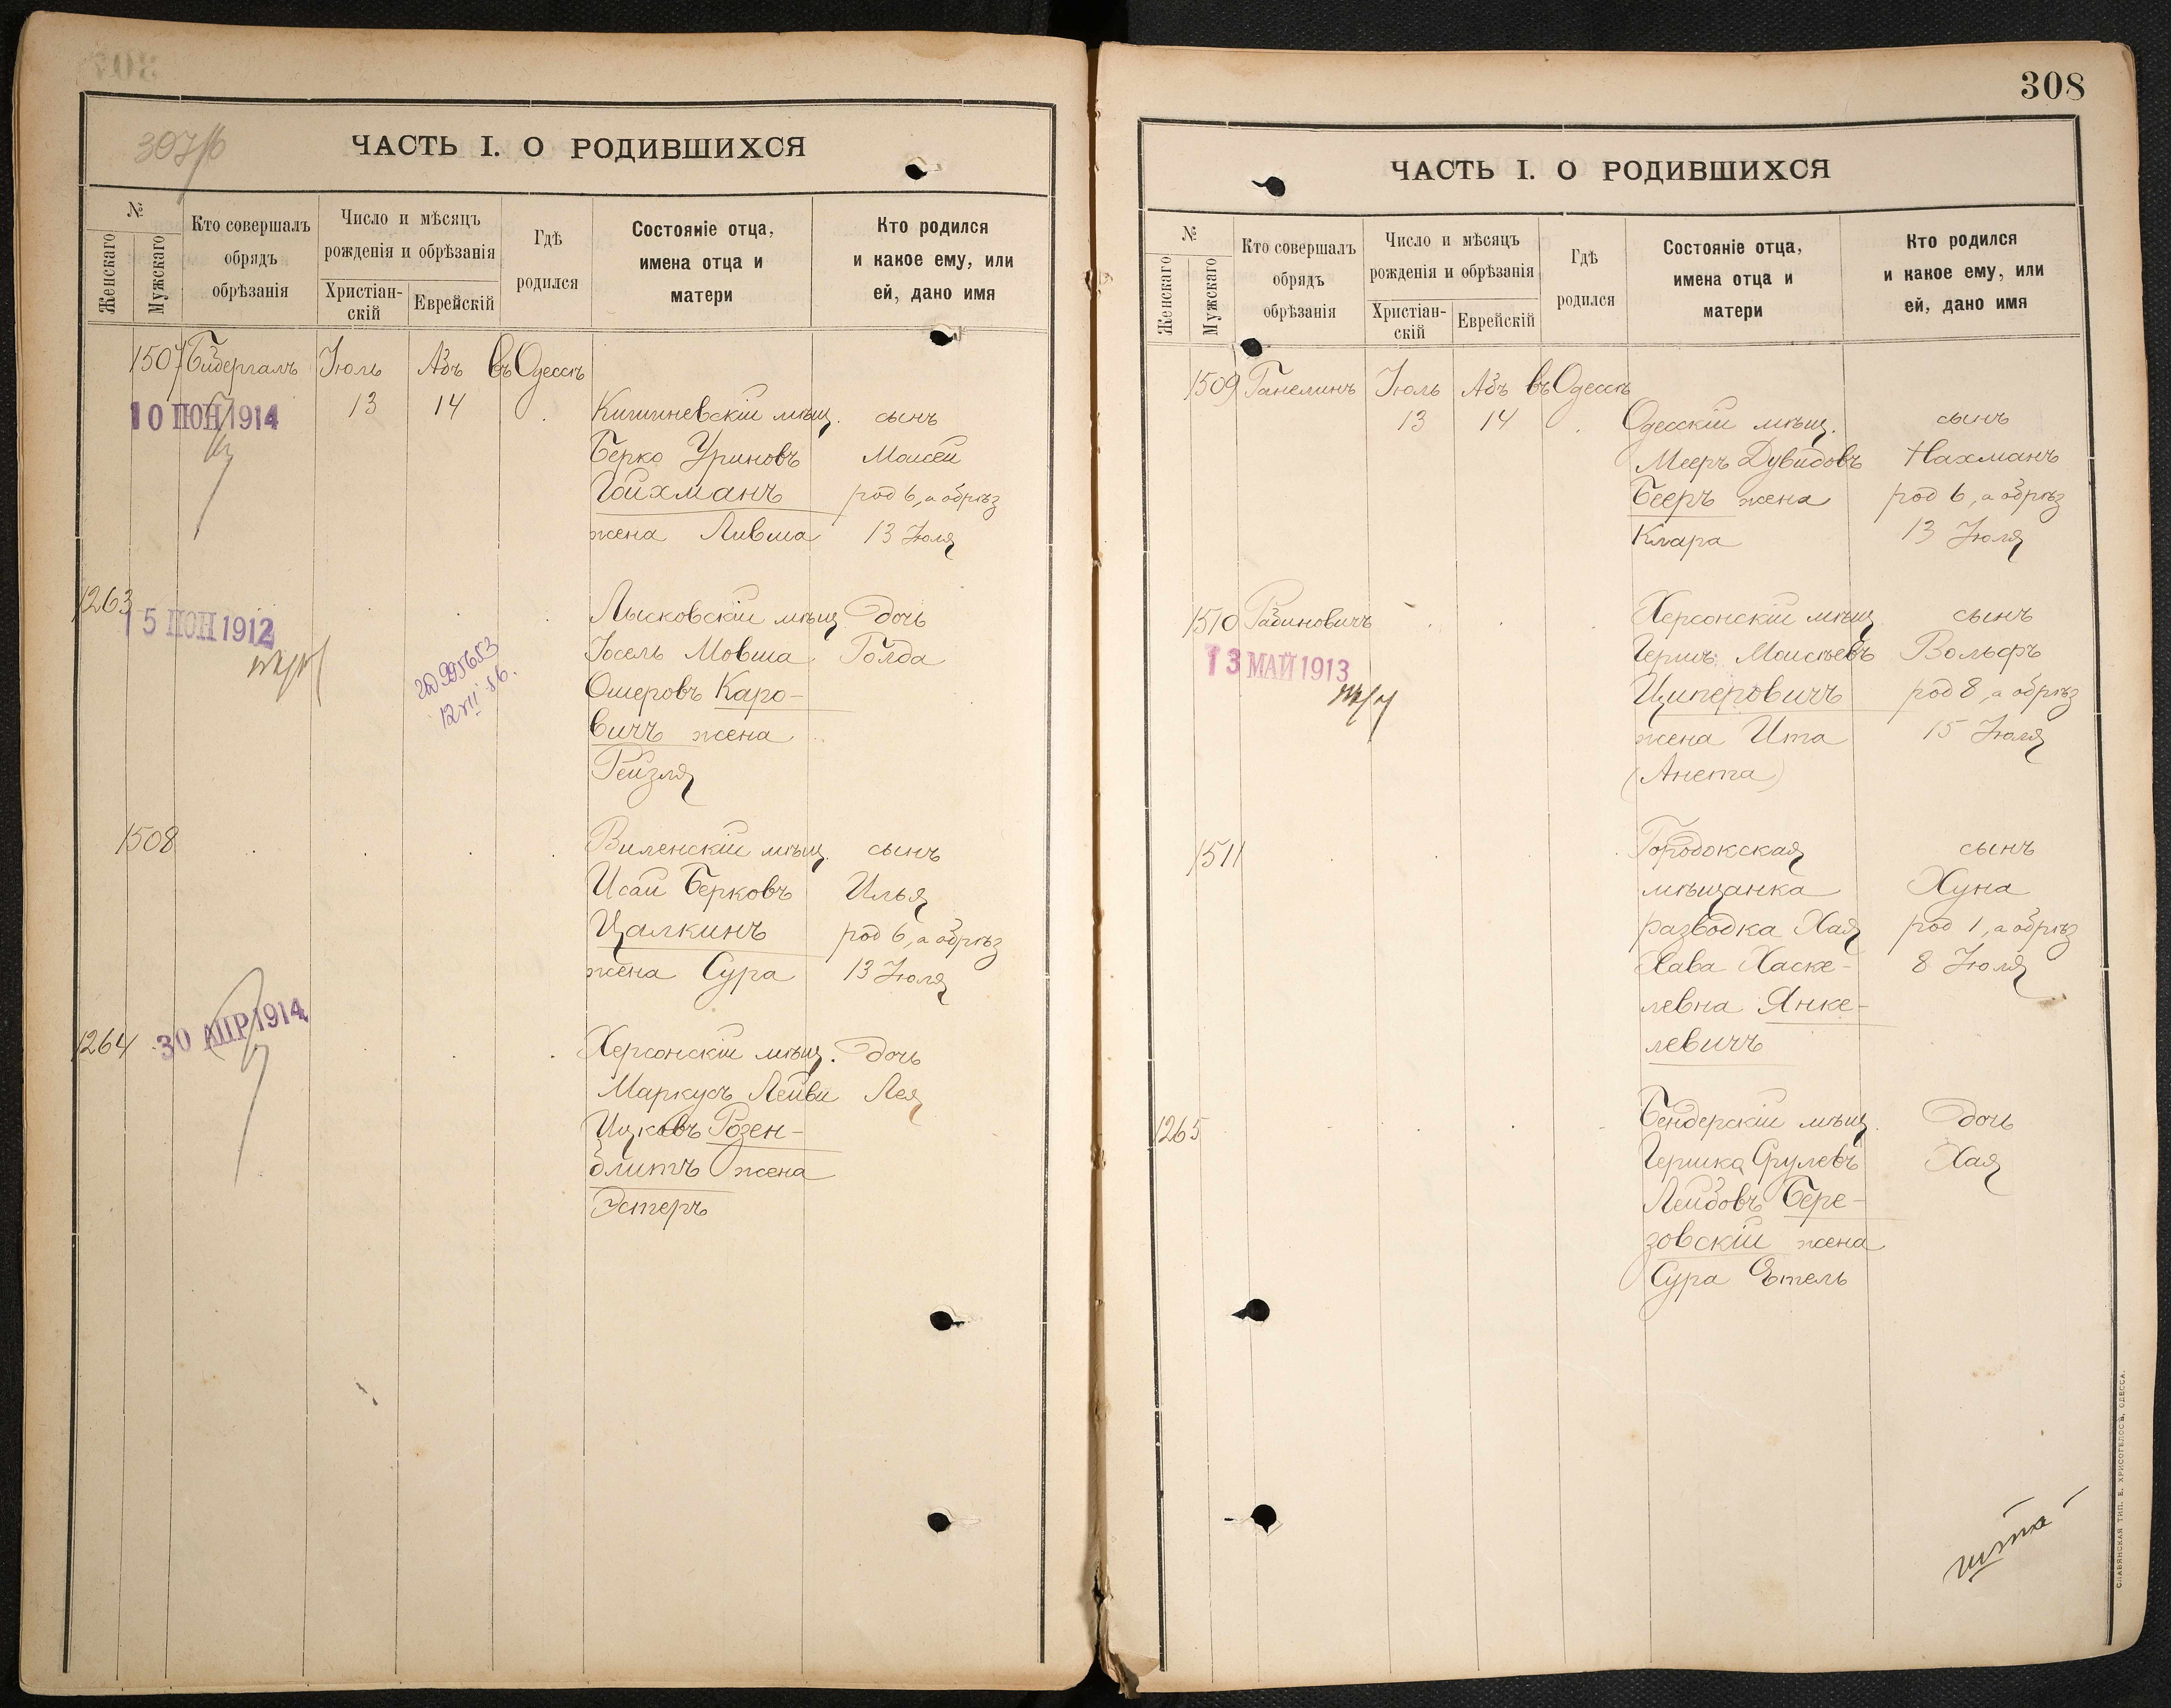 307/об
ЧАСТЬ I. О РОДИВШИХСЯ
№
Женскаго
Мужскаго
Кто совершалъ
обрядъ
обрѣзанія
Число и мѣсяцъ
рожденія и обрѣзанія
Христіан-
скій
Еврейскій
Гдѣ
родился
Состояніе отца,
имена отца и
матери
Кто родился
и какое ему, или
ей, дано имя
1507 Бидергалъ Іюль Абъ въ Одессѣ
10 ІЮН 1914
13 14 Кишиневскій мѣщ. сынъ
Берко Уриновъ Моисей
Гойхманъ род 6, а обрѣз
жена Ливша 13 Іюля
1263 Лысковскій мѣщ. дочь
15 ІЮН 1912
Іосель Мовша Голда
Ошеровъ Каро-
вичъ жена
Рейзля
995653
12 VII
1508 Виленскій мѣщ. сынъ
Исай Берковъ Илья
Цалкинъ род 6, а обрѣз
жена Сура 13 Іюля
1264 30 АПР 1914 Херсонскій мѣщ. дочь
Маркусъ Лейви Лея
Ицковъ Розен-
блитъ жена
Эстеръ
308
ЧАСТЬ I. О РОДИВШИХСЯ
№
Женскаго
Мужскаго
Кто совершалъ
обрядъ
обрѣзанія
Число и мѣсяцъ
рожденія и обрѣзанія
Христіан-
скій
Еврейскій
Гдѣ
родился
Состояніе отца,
имена отца и
матери
Кто родился
и какое ему, или
ей, дано имя
1509 Ганелинъ Іюль Абъ въ Одессѣ
13 14 Одесскій мѣщ. сынъ
Мееръ Дувидовъ Нахманъ
Бееръ жена род 6, а обрѣз
Клара 13 Іюля
1510 Рабиновичъ Херсонскій мѣщ. сынъ
13 МАЙ 1913
Гершъ Моисеевъ Вольфъ
Циперовичъ род 8, а обрѣз
жена Ита 15 Іюля
(Анета)
1511 Городокская сынъ
мѣщанка Хуна
разводка Хая род 1, а обрѣз
Хава Хаске- 8 Іюля
левна Янке-
левичъ
1265 Бендерскій мѣщ. дочь
Гершка Срулевъ Хая
Лейбовъ Бере-
зовскій жена
Сура Етель
СЛАВЯНСКАЯ ТИП. Е. ХРИСОГЕЛОСЪ, ОДЕССА.